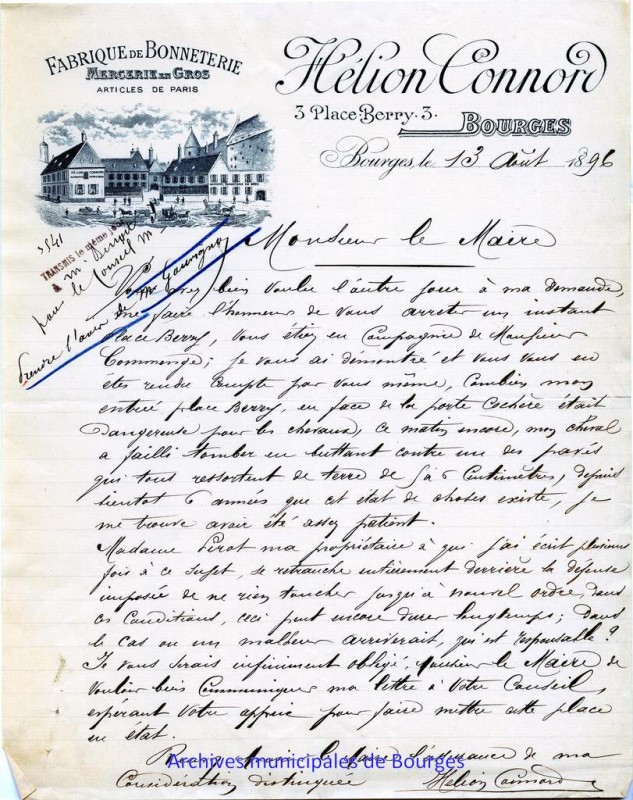 FABRIQUE DE BONNETERIE
MERCERIE EN GROS
ARTICLES DE PARIS
Hélion Connord
3 Place Berry. 3.
BOURGES
Bourges, le 13 Août 1896
5541
TRANSMIS le même jour
à M.
pour le Conseil M
Prendre l'avis de Mr
Monsieur le Maire
Vous avez bien voulu l'autre jour à ma demande,
me faire l'honneur de vous arreter un instant
place Berry, vous étiez en Compagnie de Monsieur
Commenge; je vous ai démontré et vous vous en
etes rendu Compte par vous même, Combien mon
entrée place Berry, en face de la porte Cochère était
dangereuse pour les chevaux, ce matin encore, mon cheval
a failli tomber en buttant contre un des pavés
qui tous ressortent de terre de 5 à 6 Centimètres, depuis
bientot 6 années que cet état de choses existe, je
me trouve avoir été assez patient.
Madame Lerot ma propriétaire à qui j'ai écrit plusieurs
fois à ce sujet, se retranche entièrement derrière la défense
imposée de ne rien toucher jusqu'à nouvel ordre, dans
ces Conditions, ceci peut encore durer longtemps; Dans
le cas ou un malheur arriverait, qui est responsable?
Je vous serais infiniment obligé, Monsieur le Maire de
vouloir bien Communiquer ma lettre à Votre Conseil,
espérant Votre appui pour faire mettre cette place
en état.
Archives municipales de Bourges
l'assurance de ma
Considération distinguée
Hélion Connord